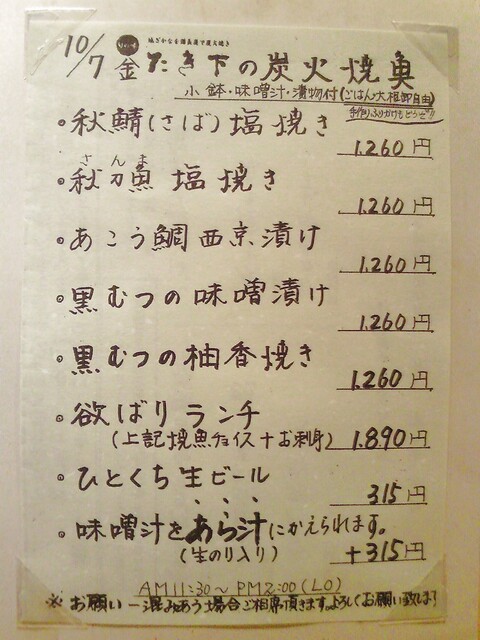 10/7 金 たき下の炭火焼魚
小鉢・味噌汁・漬物付(ごはん大根卸自由)
手作りふりかけもどうぞ!!
・秋鯖(さば)塩焼き
1.260円
さんま
・秋刀魚 塩焼き
1.260円
・あこう鯛西京漬け
1.260円
・黒むつの味噌漬け
1.260円
・黒むつの柚香焼き
1.260円
・欲ばりランチ
(上記焼魚チョイス+お刺身) 1.890円
・ひとくち生ビール
315円
・味噌汁をあら汁にかえられます。
(生のり入り) +315円
AM11:30〜PM2:00(LO)
※お願い—混みあう場合ご相席頂きます。よろしくお願い致します